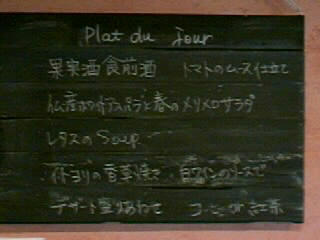 Plat du Jour
果実酒食前酒 トマトのムース仕立て
仏産ホワイトアスパラと春のメリメロサラダ
レタスのSoup
イトヨリの香草焼き 白ワインのソースで
デザート盛り合わせ コーヒーか紅茶